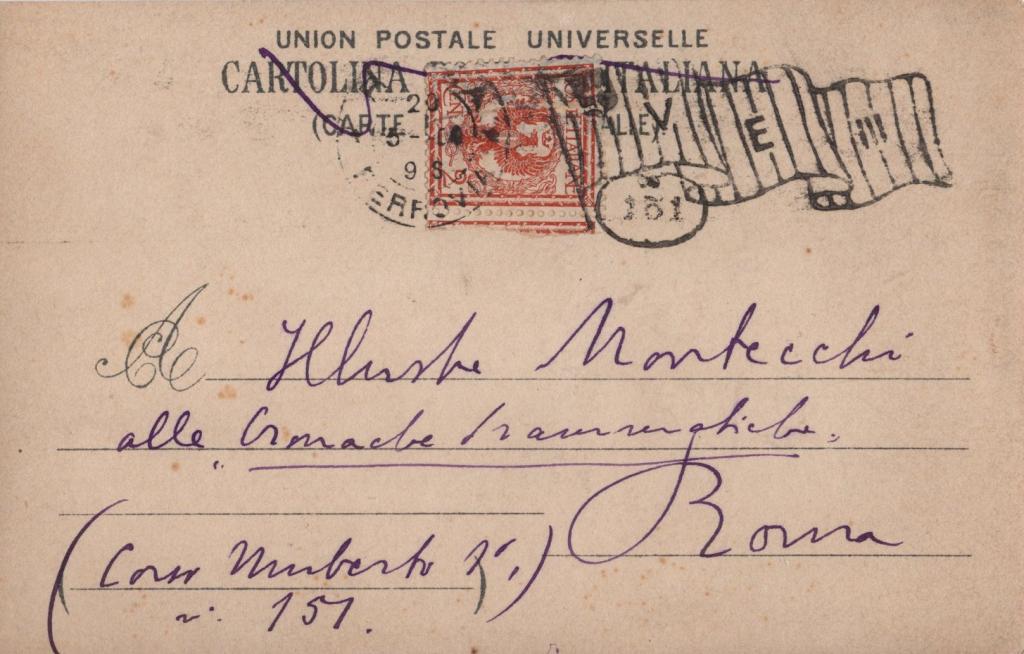 UNION POSTALE UNIVERSELLE
CARTOLINA ITALIANA
(CARTE
20
5
9 S
FERROVIA
V E III
151
A Illustre Montecchi
alle "Cronache drammatiche"
Roma
(Corso Umberto Iº,)
n. 151.